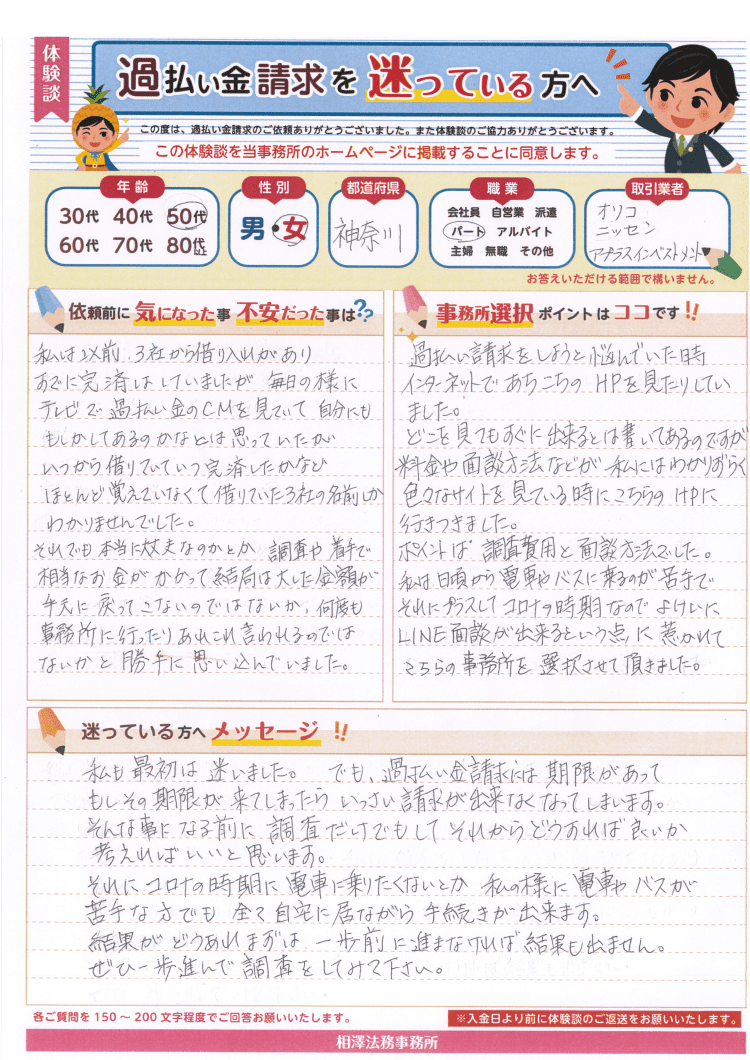 体験談
過払い金請求を迷っている方へ
この度は、過払い金請求のご依頼ありがとうございました。また体験談のご協力ありがとうございます。
この体験談を当事務所のホームページに掲載することに同意します。
年齢
30代 40代 50代
60代 70代 80代以上
性別
男・女
都道府県
神奈川
職業
会社員 自営業 派遣
パート アルバイト
主婦 無職 その他
取引業者
オリコ
ニッセン
アプラスインベストメント
お答えいただける範囲で構いません。
依頼前に気になった事 不安だった事は??
私は以前、3社から借り入れがあり
すでに完済はしていましたが 毎日の様に
テレビで過払い金のCMを見ていて 自分にも
もしかしてあるのかなとは思っていたが
いつから借りていていつ完済したかなど
ほとんど覚えていなくて借りていた3社の名前しか
わかりませんでした。
それでも本当に大丈夫なのかとか 調査や着手で
相当なお金がかかって結局は大した金額が
手元に戻ってこないのではないか、何度も
事務所に行ったりあれこれ言われるのでは
ないかと勝手に思い込んでいました。
事務所選択ポイントはココです!!
過払い請求をしようと悩んでいた時
インターネットであちこちのHPを見たりしてい
ました。
どこを見てもすぐに出来るとは書いてあるのですが
料金や面談方法などが私にはわかりずらく
色々なサイトを見ている時にこちらのHPに
行きつきました。
ポイントは調査費用と面談方法でした。
私は日頃から電車やバスに乗るのが苦手で
それにプラスしてコロナの時期なのでよけいに
LINE面談が出来るという点に惹かれて
こちらの事務所を選択させて頂きました。
迷っている方へメッセージ!!
私も最初は迷いました。 でも、過払い金請求には期限があって
もしその期限が来てしまったらいっさい請求が出来なくなってしまいます。
そんな事になる前に調査だけでもしてそれからどうすれば良いか
考えればいいと思います。
それにコロナの時期に電車に乗りたくないとか 私の様に電車やバスが
苦手な方でも全て自宅に居ながら手続きが出来ます。
結果がどうあれまずは一歩前に進まなければ結果も出ません。
ぜひ一歩進んで調査をしてみて下さい。
各ご質問を150～200文字程度でご回答お願いいたします。
※入金日より前に体験談のご返送をお願いいたします。
相澤法務事務所